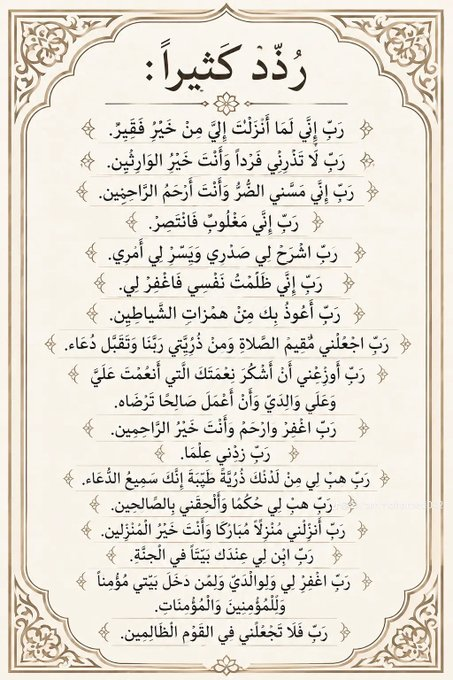 رُذّدْ كَثيراً:
رَبِّ إِنَّي لَمَا أَنْزَلْتَ إِليَّ مِنْ خَيْرٍ فَقِيرٌ.
رَبِّ لَا تَذْرنِي فَرْداً وَأَنْتَ خَيْرُ الوَارِثِين.
رَبِّ إِنَّي مَسَّني الضُّرُّ وَأَنْتَ أَرْحَمُ الرَّاحِمِين.
رَبِّ إِنَّي مَغْلُوبٌ فَانْتَصِرْ.
رَبِّ اشْرَحْ لِي صَدْرِي وَيَسِّرْ لِي أَمْرِي.
رَبِّ إِنَّي ظَلَمْتُ نَفْسِي فَاغْفِرْ لِي.
رَبِّ أَعُوذُ بِك مِنْ همْزاتِ الشَّياطِين.
رَبِّ اجْعَلْني مُقِيمَ الصَّلاةِ وَمِنْ ذُرِيَّتي رَبَّنَا وَتَقَبَّل دُعَاء.
رَبِّ أَوزِعْني أَنْ أَشْكُرَ نِعْمَتَكَ الَّتي أَنعُمْتَ عَلَيَّ
وَعَلَي وَالِدَيّ وَأَنْ أَعْمَلَ صَالِحًا تَرْضَاه.
رَبِّ اغْفِرْ وارْحَمْ وَأَنْتَ خَيْرُ الرَّاحِمِين.
رَبِّ زِدْنِي عِلْمَا.
رَبِّ هبْ لِي مِنْ لَدْنْكَ ذُرِيَّةً طَيِّبَةً إِنَّكَ سَمِيعُ الدُّعَاء.
رَبِّ هبْ لِي حُكْمًا وَأَلْحِقْني بِالصَّالِحِين.
رَبِّ أَنزِلْني مُنْزِلاً مُبَارَكًا وَأَنْتَ خَيْرُ الْمُنْزِلِين.
رَبِّ ابْن لِي عِنْدَك بَيْتاً في الْجنَّةِ.
رَبِّ اغْفِرْ لِي وَلِوالْديَّ وَلِمَن دخَلَ بَيْتي مُؤْمِناً
وَلِلْمُؤْمِنِينَ وَالْمُؤْمِنَاتِ.
رَبِّ فَلَا تَجْعُلْني في القَوْم الْظَالِمِين.